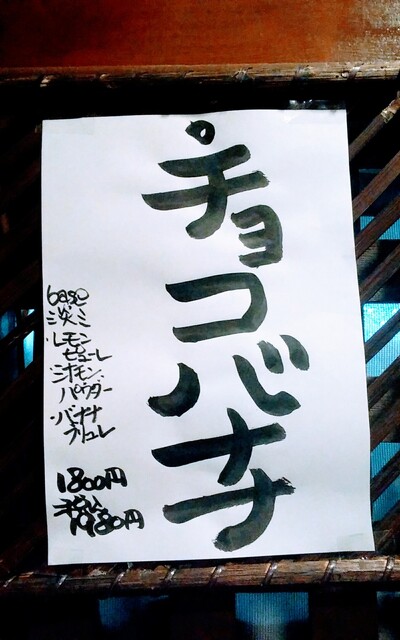 チョコバナナ
base
淡ミ
・レモン
ピューレ
・シナモン
パウダー
・バナナ
ブリュレ
1800円
1980円